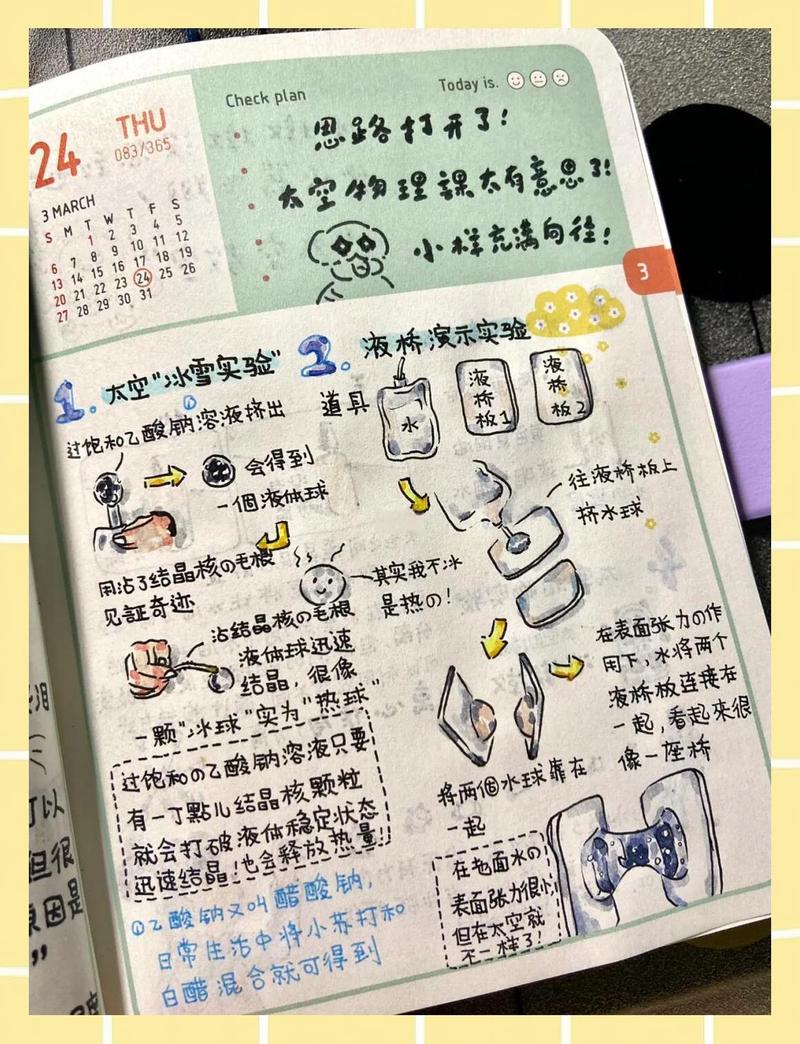 24
THU
083/365
3 MARCH
S M T W T F S
1 2 3 4 5
6 7 8 9 10 11 12
13 14 15 16 17 18 19
20 21 22 23 24 25 26
27 28 29 30 31
Check plan
Today is.
思路打开了!
太空物理課太有意思了!
小样充满向往!
3
1. 太空"冰雪实验"
①
过饱和乙酸钠溶液挤出
会得到
一個液体球
用沾了结晶核の毛根
见証奇迹
其实我不冰
是热の!
沾结晶核の毛根
液体球迅速
结晶,很像
一颗"冰球"实为"热球"
过饱和の乙酸钠溶液只要
有一丁點儿结晶核颗粒
就会打破液体稳定状态
迅速结晶!也会释放热量!!
①乙酸钠又叫醋酸钠,
日常生活中将小苏打和
白醋混合就可得到
2. 液桥演示实验
道具
水
液
桥
板1
液
桥
板2
往液桥板上
挤水球
在表面张力の作
用下,水将两个
液桥板连接在
一起,看起来很
像一座桥
将两個水球靠在
一起
在地面水の
表面张力很小
但在太空就
不一样了!
可以
但很
原因是
"